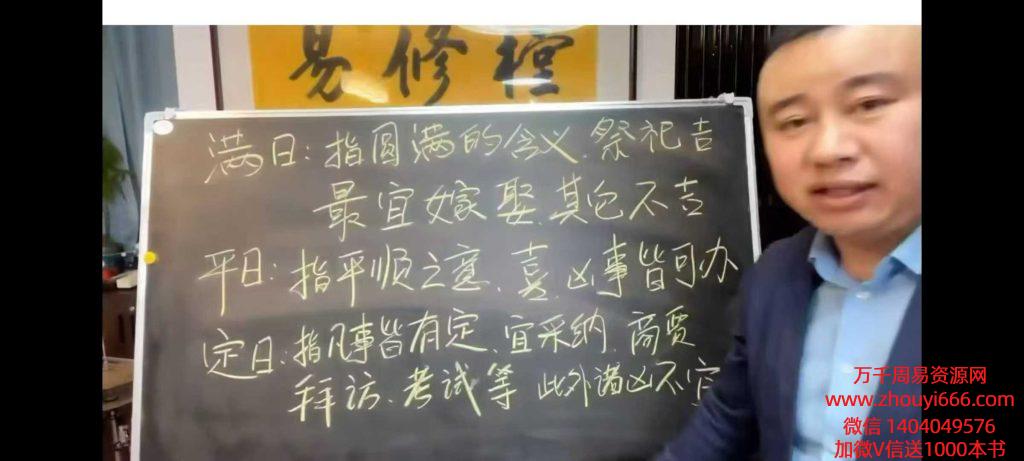 易修檀
满日:指圆满的含义.祭祀吉
最宜嫁娶.其它不吉
平日:指平顺之意.喜.凶事皆可办
定日:指凡事皆有定.宜采纳.商贾
拜访.考试等 此外诸凶不宜
万千周易资源网
www.zhouyi666.com
微信 1404049576
加微V信送1000本书